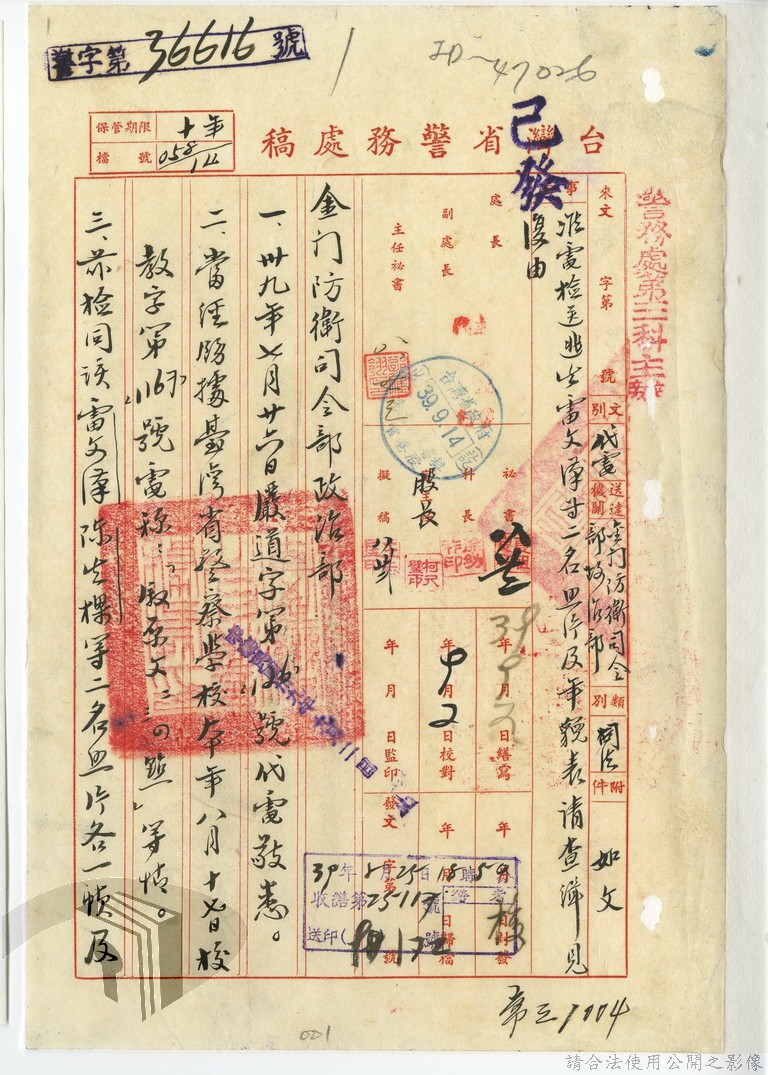 警字第36616號
ID-47026
台灣省警務處稿
保管期限 十年
檔號 058
已發
警務處第三科主辦
來文 字第 號
文別 代電
送達機關 金门防衛司令部政治部
類別 司法
附件 如文
事由
准電檢送逃生雷文澤廿二名照片及年貌表請查緝見復由
處長
副處長
主任祕書
祕書
科長
股長
擬稿
台灣省政府
39.9.14
年 月 日繕寫
年 月 日校對
年 月 日監印
發文 字第 號
39年8月25日18時50分
收繕第 號
送印
金门防衛司令部政治部
一、卅九年七月廿六日嚴道字第 號代電敬悉。
二、當經飭據臺灣省警察學校本年八月十七日校
教字第 號電稱:「敘原文二三四點」等情。
三、茲檢同該雷文澤陳生棵等二名照片各一幀及
001
請合法使用公開之影像